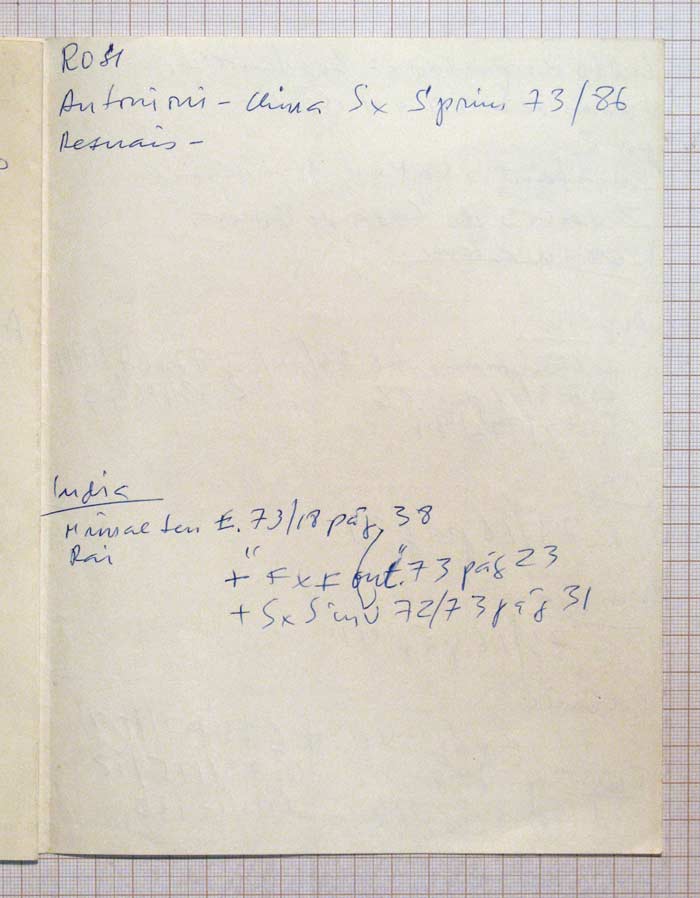 ROSI
Antonioni - China Sx Spring 73/86
Resnais -
India
Mrinal Sen E. 73/18 pág. 38
Rai
+ "FxF out." 73 pág 23
+ Sx S 72/73 pág 31